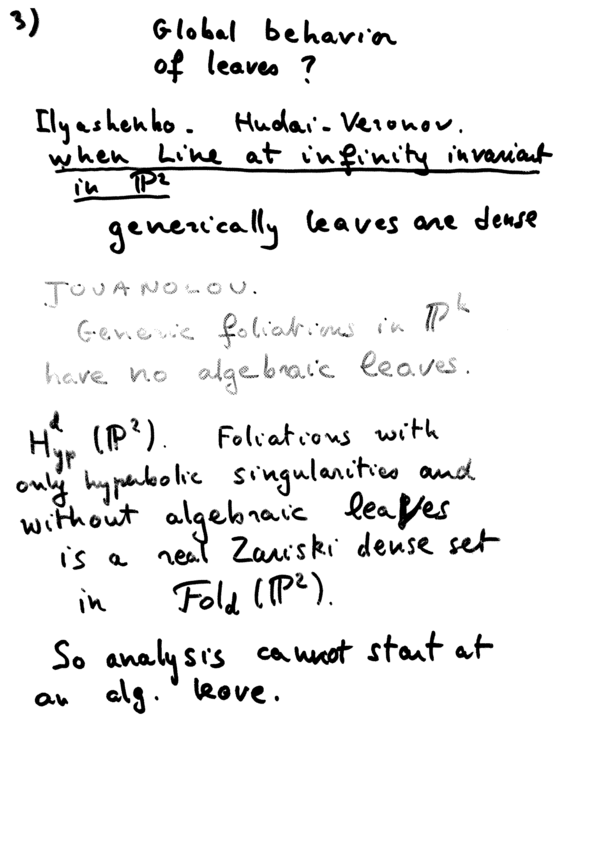 3)
Global behavior
of leaves ?
Ilyashenko. Hudai-Veronov.
when Line at infinity invariant
in ℙ²
generically leaves are dense
JOUANOLOU.
Generic foliations in ℙᵏ
have no algebraic leaves.
H^d_Hyp (ℙ²). Foliations with
only hyperbolic singularities and
without algebraic leaves
is a real Zariski dense set
in Fol_d (ℙ²).
So analysis cannot start at
an alg. leave.